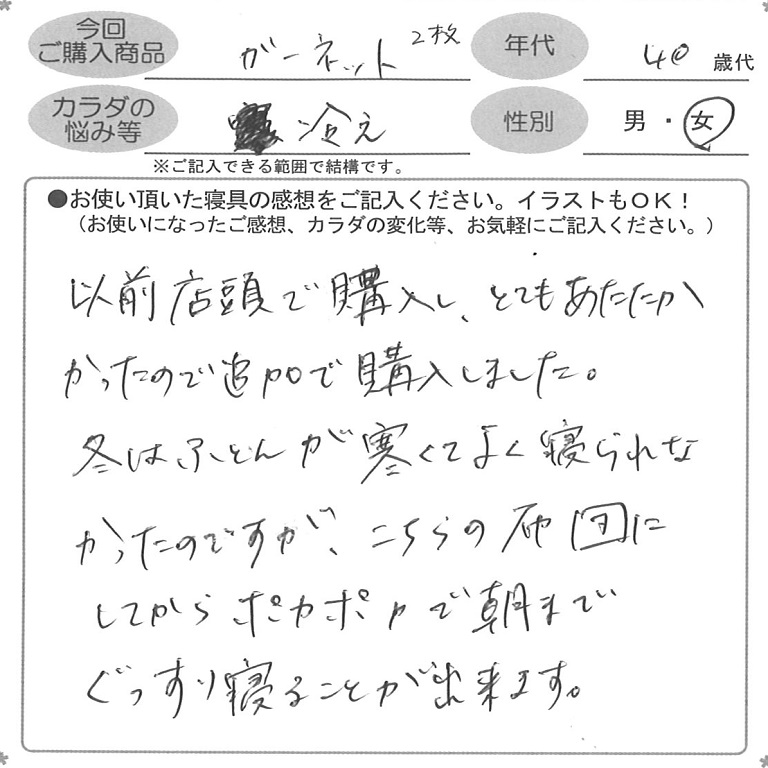 今回
ご購入商品
ガーネット 2枚
年代
40 歳代
カラダの
悩み等
冷え
性別
男・女
※ご記入できる範囲で結構です。
●お使い頂いた寝具の感想をご記入ください。イラストもOK!
(お使いになったご感想、カラダの変化等、お気軽にご記入ください。)
以前店頭で購入し、とてもあたたか
かったので追加で購入しました。
冬はふとんが寒くてよく寝られな
かったのですが、こちらの布団に
してからポカポカで朝まで
ぐっすり寝ることが出来ます。